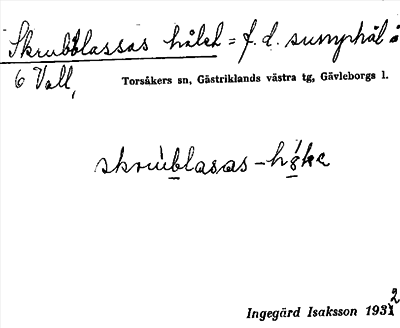 Skrubblassas hålet = f. d. sumphål:
6 Vall,
Torsåkers sn, Gästriklands västra tg, Gävleborgs l.
skrublasas - hǫke
Ingegärd Isaksson 1932